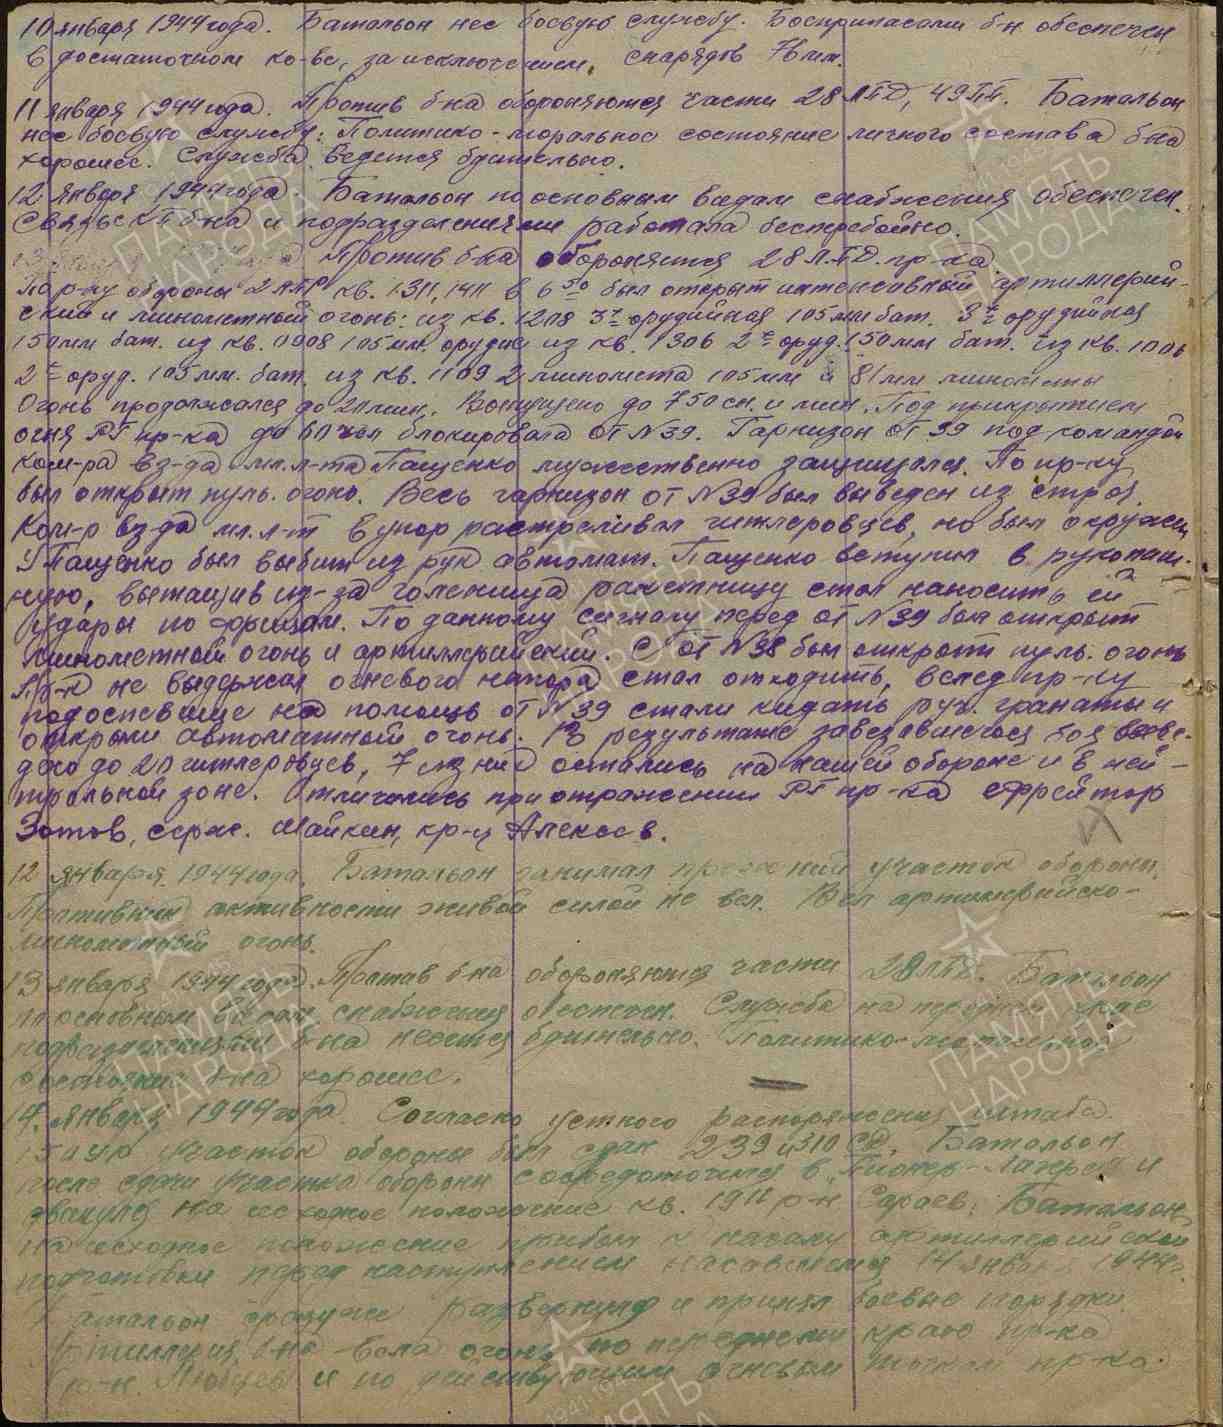 10 января 1944 года. Батальон нес боевую службу. Боеприпасами б-н обеспечен
в достаточном ко-ве, за исключением снарядов 76 мм.
11 января 1944 года. Против б-на обороняются части 28 ЛПД, 49 ПП. Батальон
нес боевую службу. Политико-моральное состояние личного состава б-на
хорошее. Служба ведется бдительно.
12 января 1944 года. Батальон по основным видам снабжения обеспечен.
Связь с КП б-на и подразделениями работала бесперебойно.
Против б-на обороняется 28 Л.П.Д. пр-ка.
По р-ну обороны 2 кв. 1311, 1411 в 6 50 был открыт интенсивный артиллерий-
ский и минометный огонь: из кв. 1208 3х орудийная 105 мм бат. 3х орудийная
150 мм бат. из кв. 0908 105 мм. орудие из кв. 1306 2х оруд. 150 мм бат. из кв. 1006
2х оруд. 105 мм. бат. из кв. 1109 2 миномета 105 мм и 81 мм минометы
Огонь продолжался до 20 мин. Выпущено до 750 сн. и мин. Под прикрытием
огня РГ пр-ка до 60 чел блокировала ОТ №39. Гарнизон ОТ 39 под командой
ком-ра вз-да мл. л-та Пащенко мужественно защищался. По пр-ку
был открыт пуль. огонь. Весь гарнизон ОТ №39 был выведен из строя.
Ком-р вз-да мл. л-т в упор расстреливал гитлеровцев, но был окружен
У Пащенко был выбит из рук автомат. Пащенко вступил в рукопаш-
ную, вытащив из-за голенища ракетницу стал наносить ей
удары по фрицам. По данному сигналу перед ОТ №39 был открыт
минометный огонь и артиллерийский. С ОТ №38 был открыт пуль. огонь
Пр-к не выдержал огневого напора стал отходить, вслед пр-ку
подоспевшие на помощь ОТ №39 стали кидать руч. гранаты и
открыли автоматный огонь. В результате завязавшегося боя выве-
дено до 20 гитлеровцев, 7 из них остались на нашей обороне и в ней-
тральной зоне. Отличились при отражении РГ пр-ка ефрейтор
Зотов, серж. Майкин, кр-ц Алексеев.
12 января 1944 года. Батальон занимал прежний участок обороны.
Противник активности живой силой не вел. Вел артиллерийско-
минометный огонь.
13 января 1944 года. Против б-на обороняются части 28 ЛПД. Батальон
по основным видам снабжения обеспечен. Служба на переднем крае
подразделениями б-на несется бдительно. Политико-моральное
состояние б-на хорошее.
14 января 1944 года. Согласно устного распоряжения штаба
участок обороны был сдан 239 и 310 СД. Батальон
после сдачи участка обороны сосредоточился в Пионер-Лагерь и
двинулся на исходное положение кв. 1911 р-н Сараев. Батальон
на исходное положение прибыл к началу артиллерийской
подготовки перед наступлением 14 января 1944 г.
Батальон сразу же развернулся и принял боевые порядки.
Артиллерия б-на вела огонь по переднему краю пр-ка
р-н и по действующим огневым точкам пр-ка.
ПАМЯТЬ
НАРОДА
ПАМЯТЬ
НАРОДА
ПАМЯТЬ
НАРОДА
ПАМЯТЬ
НАРОДА
ПАМЯТЬ
НАРОДА